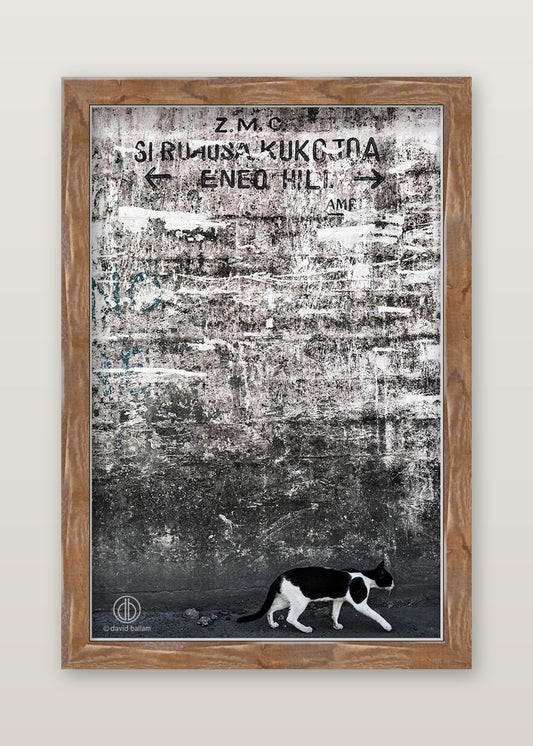 Z.M.C.
SI RUHUSA KUKOJOA
← ENEO HILI →
AMRI
NO
© david ballam